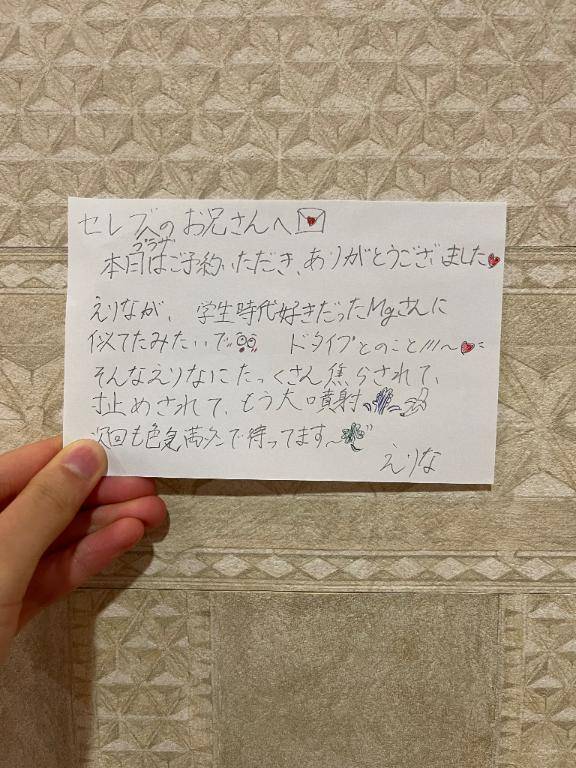 セレブのお兄さんへ
プラザ
本日はご予約いただき、ありがとうございました
えりなが、学生時代好きだったMgさんに
似てたみたいで ドタイプとのこと///〜
そんなえりなにたっくさん焦らされて、
寸止めされて、もう大噴射
次回も色気満タンで待ってます〜
えりな